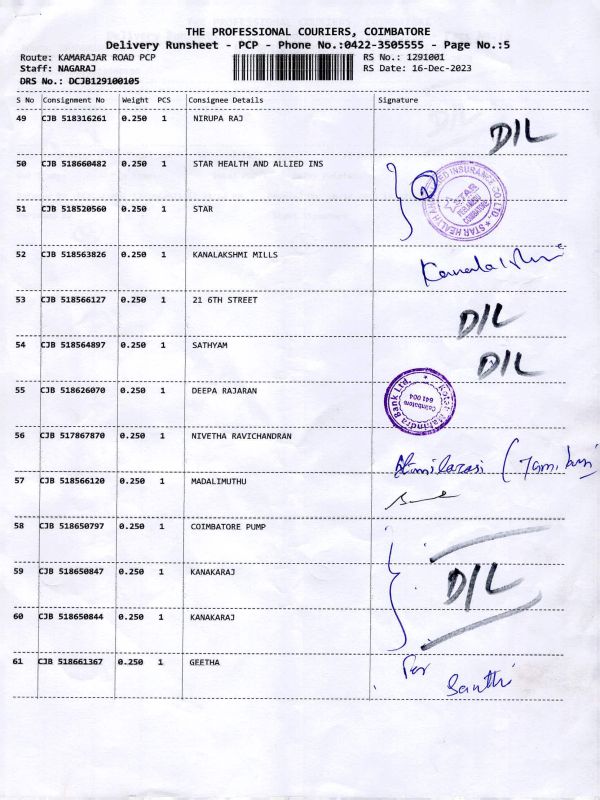 THE PROFESSIONAL COURIERS, COIMBATORE
Delivery Runsheet - PCP - Phone No.:0422-3505555 - Page No.:5
Route: KAMARAJAR ROAD PCP RS No.: 1291001
Staff: NAGARAJ RS Date: 16-Dec-2023
DRS No.: DCJB129100105
S No Consignment No Weight PCS Consignee Details Signature
49 CJB 518316261 0.250 1 NIRUPA RAJ D/L
50 CJB 518660482 0.250 1 STAR HEALTH AND ALLIED INS
STAR HEALTH AND ALLIED INSURANCE CO. LTD.
STAR
COIMBATORE
51 CJB 518520560 0.250 1 STAR
52 CJB 518563826 0.250 1 KANALAKSHMI MILLS
53 CJB 518566127 0.250 1 21 6TH STREET D/L
54 CJB 518564897 0.250 1 SATHYAM D/L
55 CJB 518626070 0.250 1 DEEPA RAJARAN
Kotak Mahindra Bank Ltd.
Coimbatore
641 004
56 CJB 517867870 0.250 1 NIVETHA RAVICHANDRAN
57 CJB 518566120 0.250 1 MADALIMUTHU
58 CJB 518650797 0.250 1 COIMBATORE PUMP
59 CJB 518650847 0.250 1 KANAKARAJ D/L
60 CJB 518650844 0.250 1 KANAKARAJ
61 CJB 518661367 0.250 1 GEETHA For
Santhi